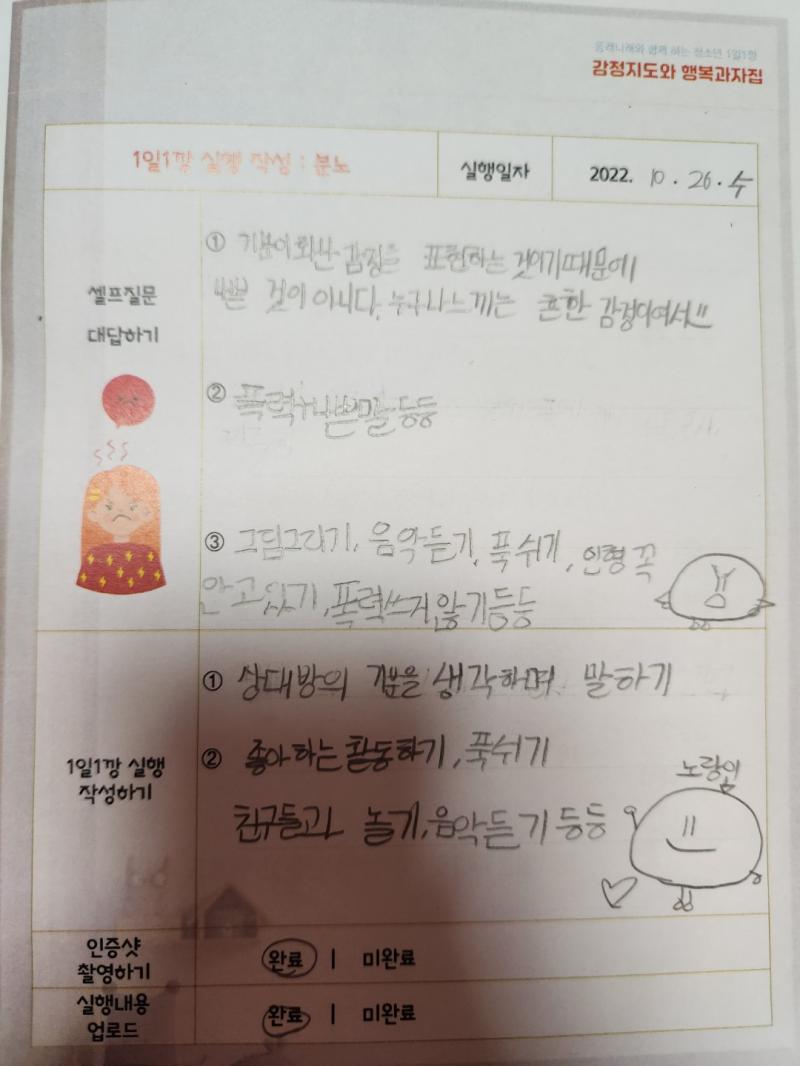 동래니래와 함께 하는 청소년 1일1깡
감정지도와 행복과자집
1일1깡 실행 작성 : 분노
실행일자
2022. 10 . 26 . 수
셀프질문
대답하기
① 기분이 화난 감정을 표현하는 것이기 때문에
쁜 것이 아니다. 누구나 느끼는 흔한 감정이여서!!
② 폭력+나쁜말 등등
③ 그림그리기, 음악듣기, 푹 쉬기, 인형 꼭
안고 있기, 폭력쓰지 않기 등등
1일1깡 실행
작성하기
① 상대방의 기분을 생각하며 말하기
② 좋아하는 활동하기, 푹쉬기
친구들과 놀기, 음악듣기 등등
노랑이
인증샷
촬영하기
완료 | 미완료
실행내용
업로드
완료 | 미완료